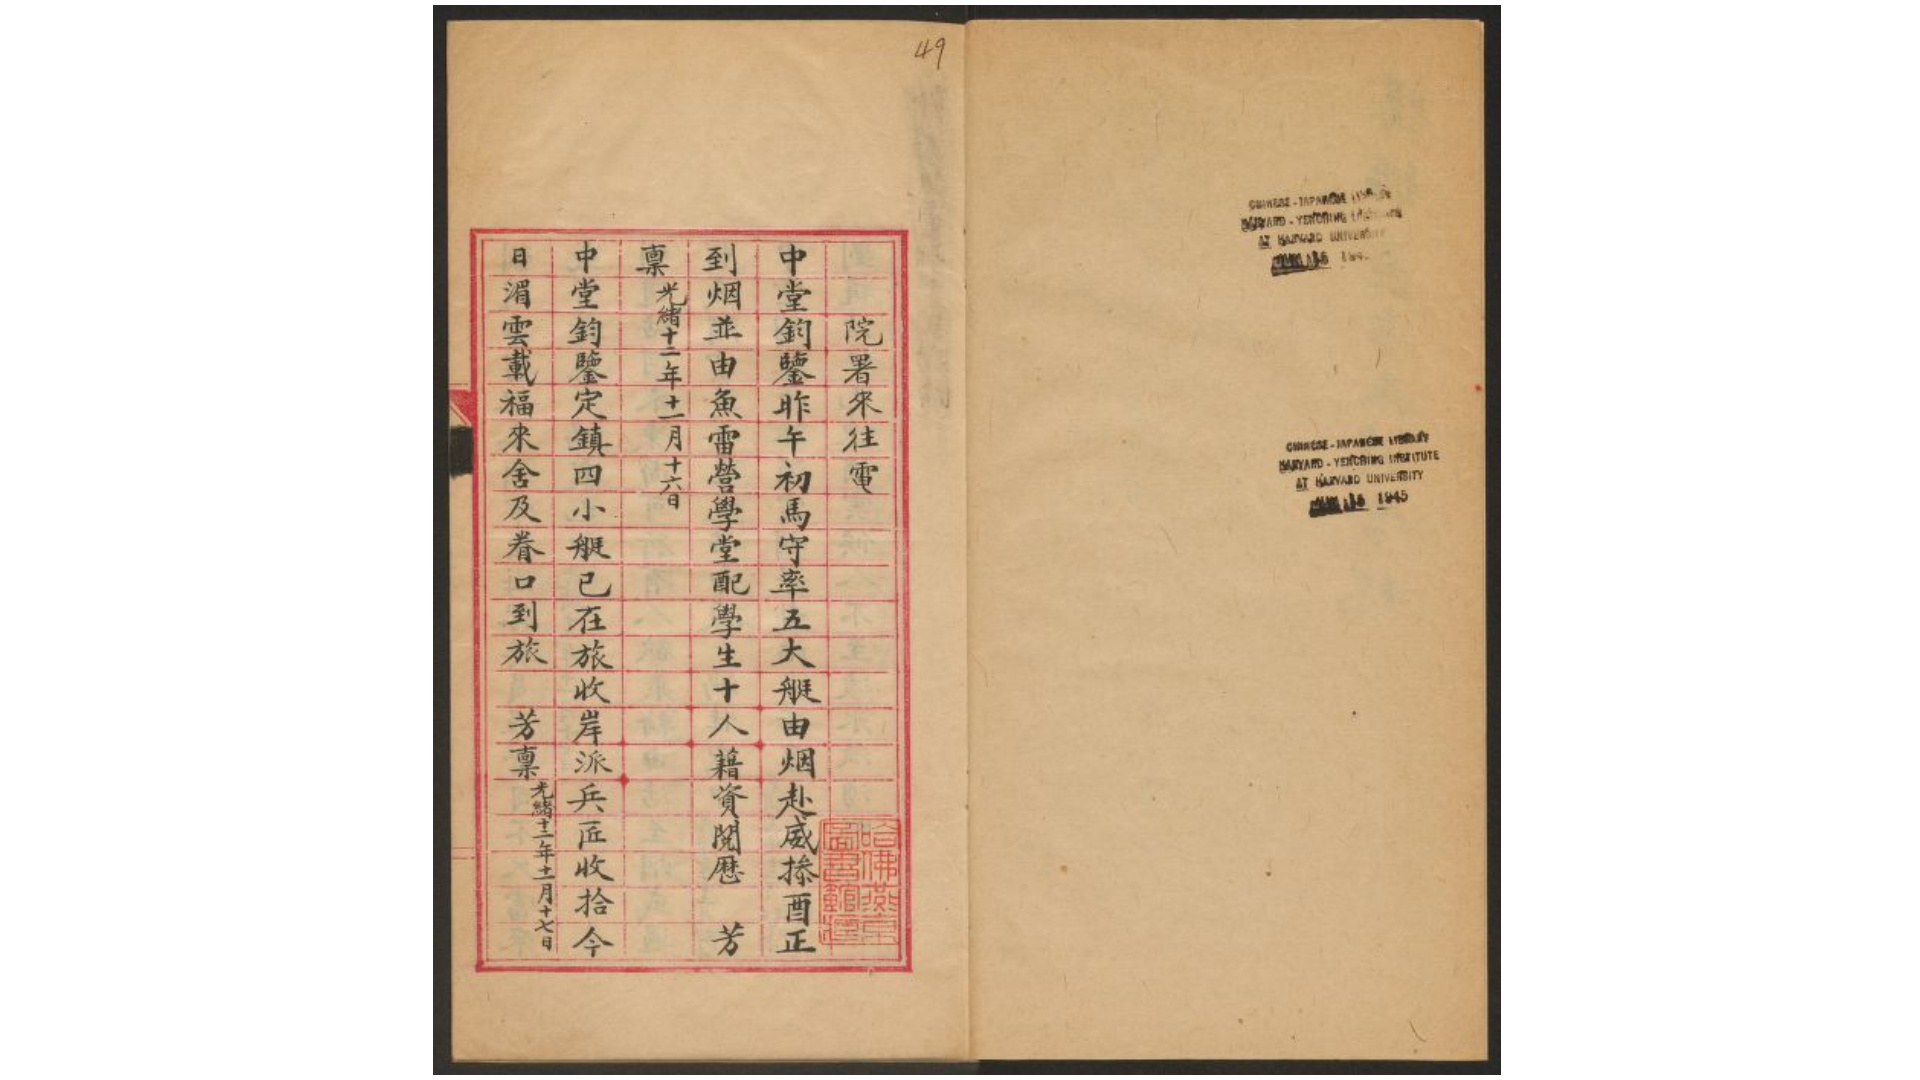 CHINESE-JAPANESE LIBRARY
HARVARD-YENCHING INSTITUTE
AT HARVARD UNIVERSITY
CHINESE-JAPANESE LIBRARY
HARVARD-YENCHING INSTITUTE
AT HARVARD UNIVERSITY
1945
49
院署來往電
哈佛燕京
圖書館藏
中堂鈞鑒昨午初馬守率五大艇由烟赴威操酉正
到烟並由魚雷營學堂配學生十人藉資閱歷 芳
稟 光緒十二年十一月十六日
中堂鈞鑒定鎮四小艇已在旅收岸派兵匠收拾今
日湄雲載福來舍及眷口到旅 芳稟 光緒十二年十一月十七日